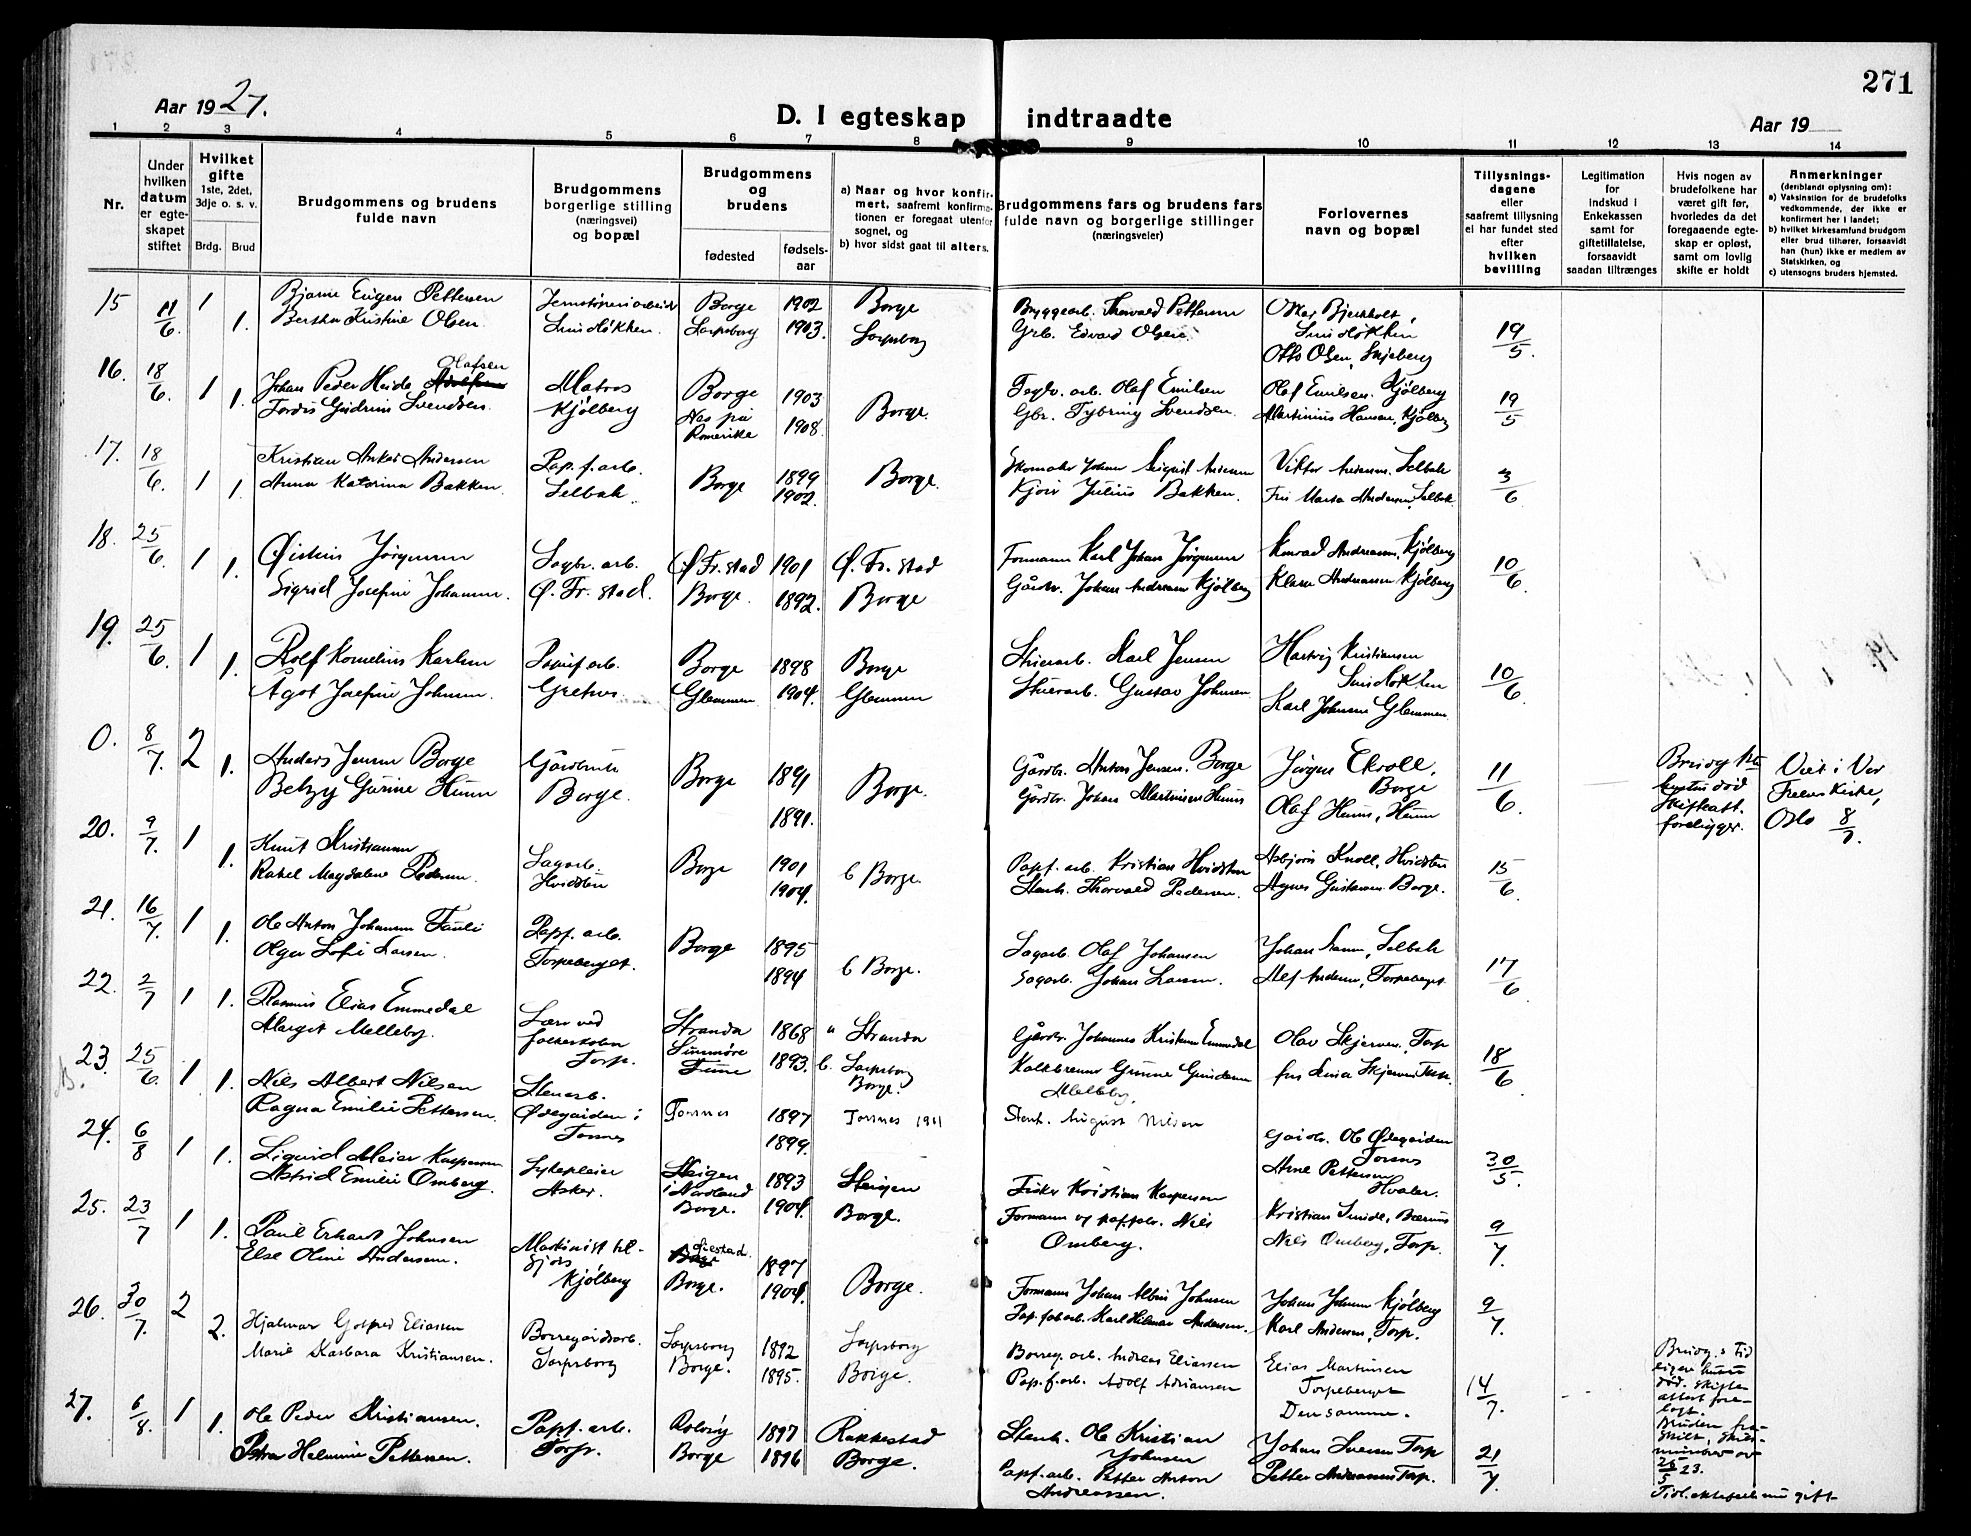 271
Aar 1927.
D. I egteskap indtraadte
Aar 19
1 2 3 4 5 6 7 8 9 10 11 12 13 14
Nr.
Under hvilken datum er egteskapet stiftet
Hvilket gifte
1ste, 2det, 3dje o. s. v.
Brdg. Brud
Brudgommens og brudens fulde navn
Brudgommens borgerlige stilling (næringsvei) og bopæl
Brudgommens og brudens
fødested
fødsels-aar
a) Naar og hvor konfirmert, saafremt konfirmationen er foregaat utenfor sognet, og
b) hvor sidst gaat til alters.
Brudgommens fars og brudens fars fulde navn og borgerlige stillinger (næringsveier)
Forlovernes navn og bopæl
Tillysningsdagene eller saafremt tillysning ei har fundet sted efter hvilken bevilling
Legitimation for indskud i Enkekassen samt for giftetillatelse, forsaavidt saadan tiltrænges
Hvis nogen av brudefolkene har været gift før, hvorledes da det foregaaende egteskap er opløst, samt om lovlig skifte er holdt
Anmerkninger
(deriblandt oplysning om):
a) Vaksination for de brudefolks vedkommende, der ikke er konfirmert her i landet;
b) hvilket kirkesamfund brudgom eller brud tilhører, forsaavidt han (hun) ikke er medlem av Statskirken, og
c) utensogns bruders hjemsted.
15 11/6. 1 1. Bjarne Eugen Pettersen Borge 1902 Borge Bryggearb. Thorvald Pettersen 19/5.
Bertha Kristine Olsen. Lunsløkken. Sarpsborg 1903. Sarpsborg Grb. Edvard Olsen
Otto Olsen, Skjeberg
16. 18/6. 1 1. Johan Peder Heide Olafsen Matros Borge 1903 Borge. Teglv. arb. Olaf Emilsen Olaf Emilsen. Kjølberg 19/5
Tordis Gudrun Svendsen. Kjølberg Nes på Romerike 1908. Gbr. Tybring Svendsen. Martinius Hansen, Kjølberg
17. 18/6. 1 1. Kristian Anker Andersen Pap. f. arb. Borge 1899 Borge. Skomaker Johan Sigurd Andersen Viktor Andersen. Selbak 3/6
Anna Katarina Bakken. Selbak. 1902. Kjørr Julius Bakken. Fru Marta Andersen, Selbak
18. 25/6. 1 1. Øistein Jørgensen Sagbr. arb. Ø. Fr.stad 1901 Ø. Fr. stad Formann Karl Johan Jørgensen Konrad Andreassen, Kjølberg 10/6
Sigrid Josefine Johansen. Ø. Fr. stad. Borge. 1892. Borge Gårdbr. Johan Andreassen Kjølberg Klara Andreassen Kjølberg
19. 25/6. 1 1. Rolf Kornelius Karlsen Papirf. arb. Borge 1898 Borge Karl Jensen Hartvig Kristiansen 10/6
Agot Josefine Johnsen. Gretnes. Glemmen 1904. Glemmen Gustav Johnsen Lunsløkken
Karl Johnsen Glemmen
0. 8/7. 2 1. Anders Jensen Borge Gårdbruker Borge 1891 Borge. Gårdbr. Anton Jensen. Borge Jørgen Ekroll, Borge 11/6. Viet i Vor Frelsers Kirke, Oslo 8/7.
Betzy Gurine Hunn Borge. 1891. Gårdbr. Johan Martinsen Hunn Olaf Hunn, Hunn
Skifteatt. foreligger.
20. 9/7. 1 1. Knut Kristiansen Sagarb. Borge 1901 b Borge. Papf. arb. Kristian Hvidsten Asbjørn Knoll, Hvidsten 15/6
Rakel Magdalene Pedersen. Hvidsten 1904. Stenh. Thorvald Pedersen. Agnes Gustavsen Borge.
21. 16/7. 1 1. Ole Anton Johansen Fauli Papf. arb. Borge 1895 b Borge. Sagarb. Olaf Johansen Johan Larsen, Selbak 17/6
Olga Sofie Larsen. Torpeberget. 1894 Sagarb. Johan Larsen. Alf Andersen, Torpeberget
22. 2/7 1 1. Rasmus Elias Emmedal Lærer ved Stranda 1868 Stranda Gårdbr. Johannes Kristensen Emmedal Olav Skjerven, Torp 18/6
Marget Melleby. folkeskolen Torp. Sunnmøre Tune 1893. b. Sarpsborg Borge. Kalkbrenner Gunne Gundersen Melleby. fru Anna Skjerven Torp.
23. 25/6. 1 1. Nils Albert Nilsen Stenarb. Torsnes 1897 Torsnes 1911 Stenh. August Nilsen Gårdbr. Ole Ødegården Torsnes 30/5.
Ragna Emilie Pettersen. Ødegården i Torsnes 1899. Arne Pettersen Hvaler.
24. 6/8 1 1. Sigurd Meier Kaspersen Sykepleier Steigen i Nordland 1893 Steigen Fisker Kristian Kaspersen Kristian Lunde, Bærum 9/7.
Astrid Emilie Omberg. Asker. Borge. 1904. Borge. Formann og Nils Omberg. Nils Omberg, Torp.
25. 23/7 1 1. Paul Erhart Johnsen Maskinist Kjølberg 1897 Borge. Formann Johan Albin Johnsen Johan Johnsen Kjølberg 9/7.
Else Oline Andersen. Borge. 1904. Pap. fab arb. Karl Hilmar Andersen. Karl Andersen, Torp.
26. 30/7. 2 2. Hjalmar Gotfred Eliassen Borregårdsarb. Sarpsborg 1892 Sarpsborg Borreg. arb. Andreas Eliassen Elias Martinsen 14/7.
Marie Barbara Kristiansen. Sarpsborg Borge. 1895. Borge. Pap.f.arb. Adolf Adriansen Torpeberget
Densamme.
Brudg.s tidligere hustru død. Skifteattest forelagt. Bruden fraskilt, 25/5 23.
27. 6/8. 1 1. Ole Peder Kristiansen. Papf. arb. Rolvsøy 1897 Rakkestad Stenh. Ole Kristian Johnsen Johan Svensen Torp 21/7.
Petra Helmine Pettersen. Torp. Borge 1896 Borge. Papf. arb. Petter Anton Andreassen. Petter Andreassen Torp.